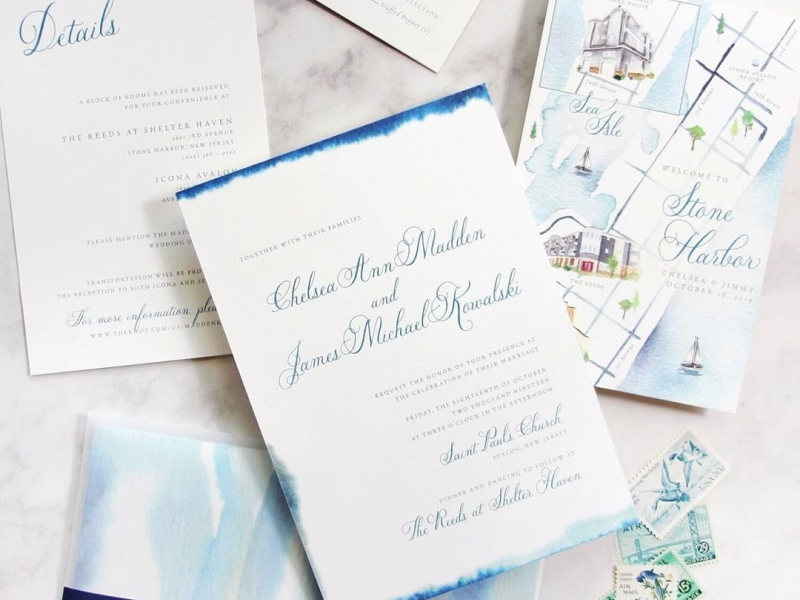 Details
A BLOCK OF ROOMS HAS BEEN RESERVED
FOR YOUR CONVENIENCE AT
THE REEDS AT SHELTER HAVEN
9601 3RD AVENUE
STONE HARBOR, NEW JERSEY
ICONA AVALON
PLEASE MENTION THE
WEDDING
TRANSPORTATION WILL BE
THE RECEPTION TO BOTH ICONA AND
For more information,
WWW.THEKNOT.COM/US/
Stuffed Pepper (v)
TOGETHER WITH THEIR FAMILIES
Chelsea Ann Madden
and
James Michael Kowalski
REQUEST THE HONOR OF YOUR PRESENCE AT
THE CELEBRATION OF THEIR MARRIAGE
FRIDAY, THE EIGHTEENTH OF OCTOBER
TWO THOUSAND NINETEEN
AT THREE O'CLOCK IN THE AFTERNOON
Saint Pauls Church
AVALON, NEW JERSEY
DINNER AND DANCING TO FOLLOW AT
The Reeds at Shelter Haven
HOUSE
Sea
Isle
ICONA AVALON
RESORT
79TH STREET
WELCOME TO
Stone
Harbor
CHELSEA & JIMMY
OCTOBER 18, 2019
THE REEDS